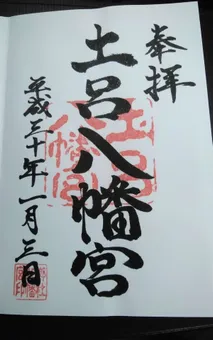 奉拝
土呂八幡宮
平成三十年一月三日
土呂
八幡宮